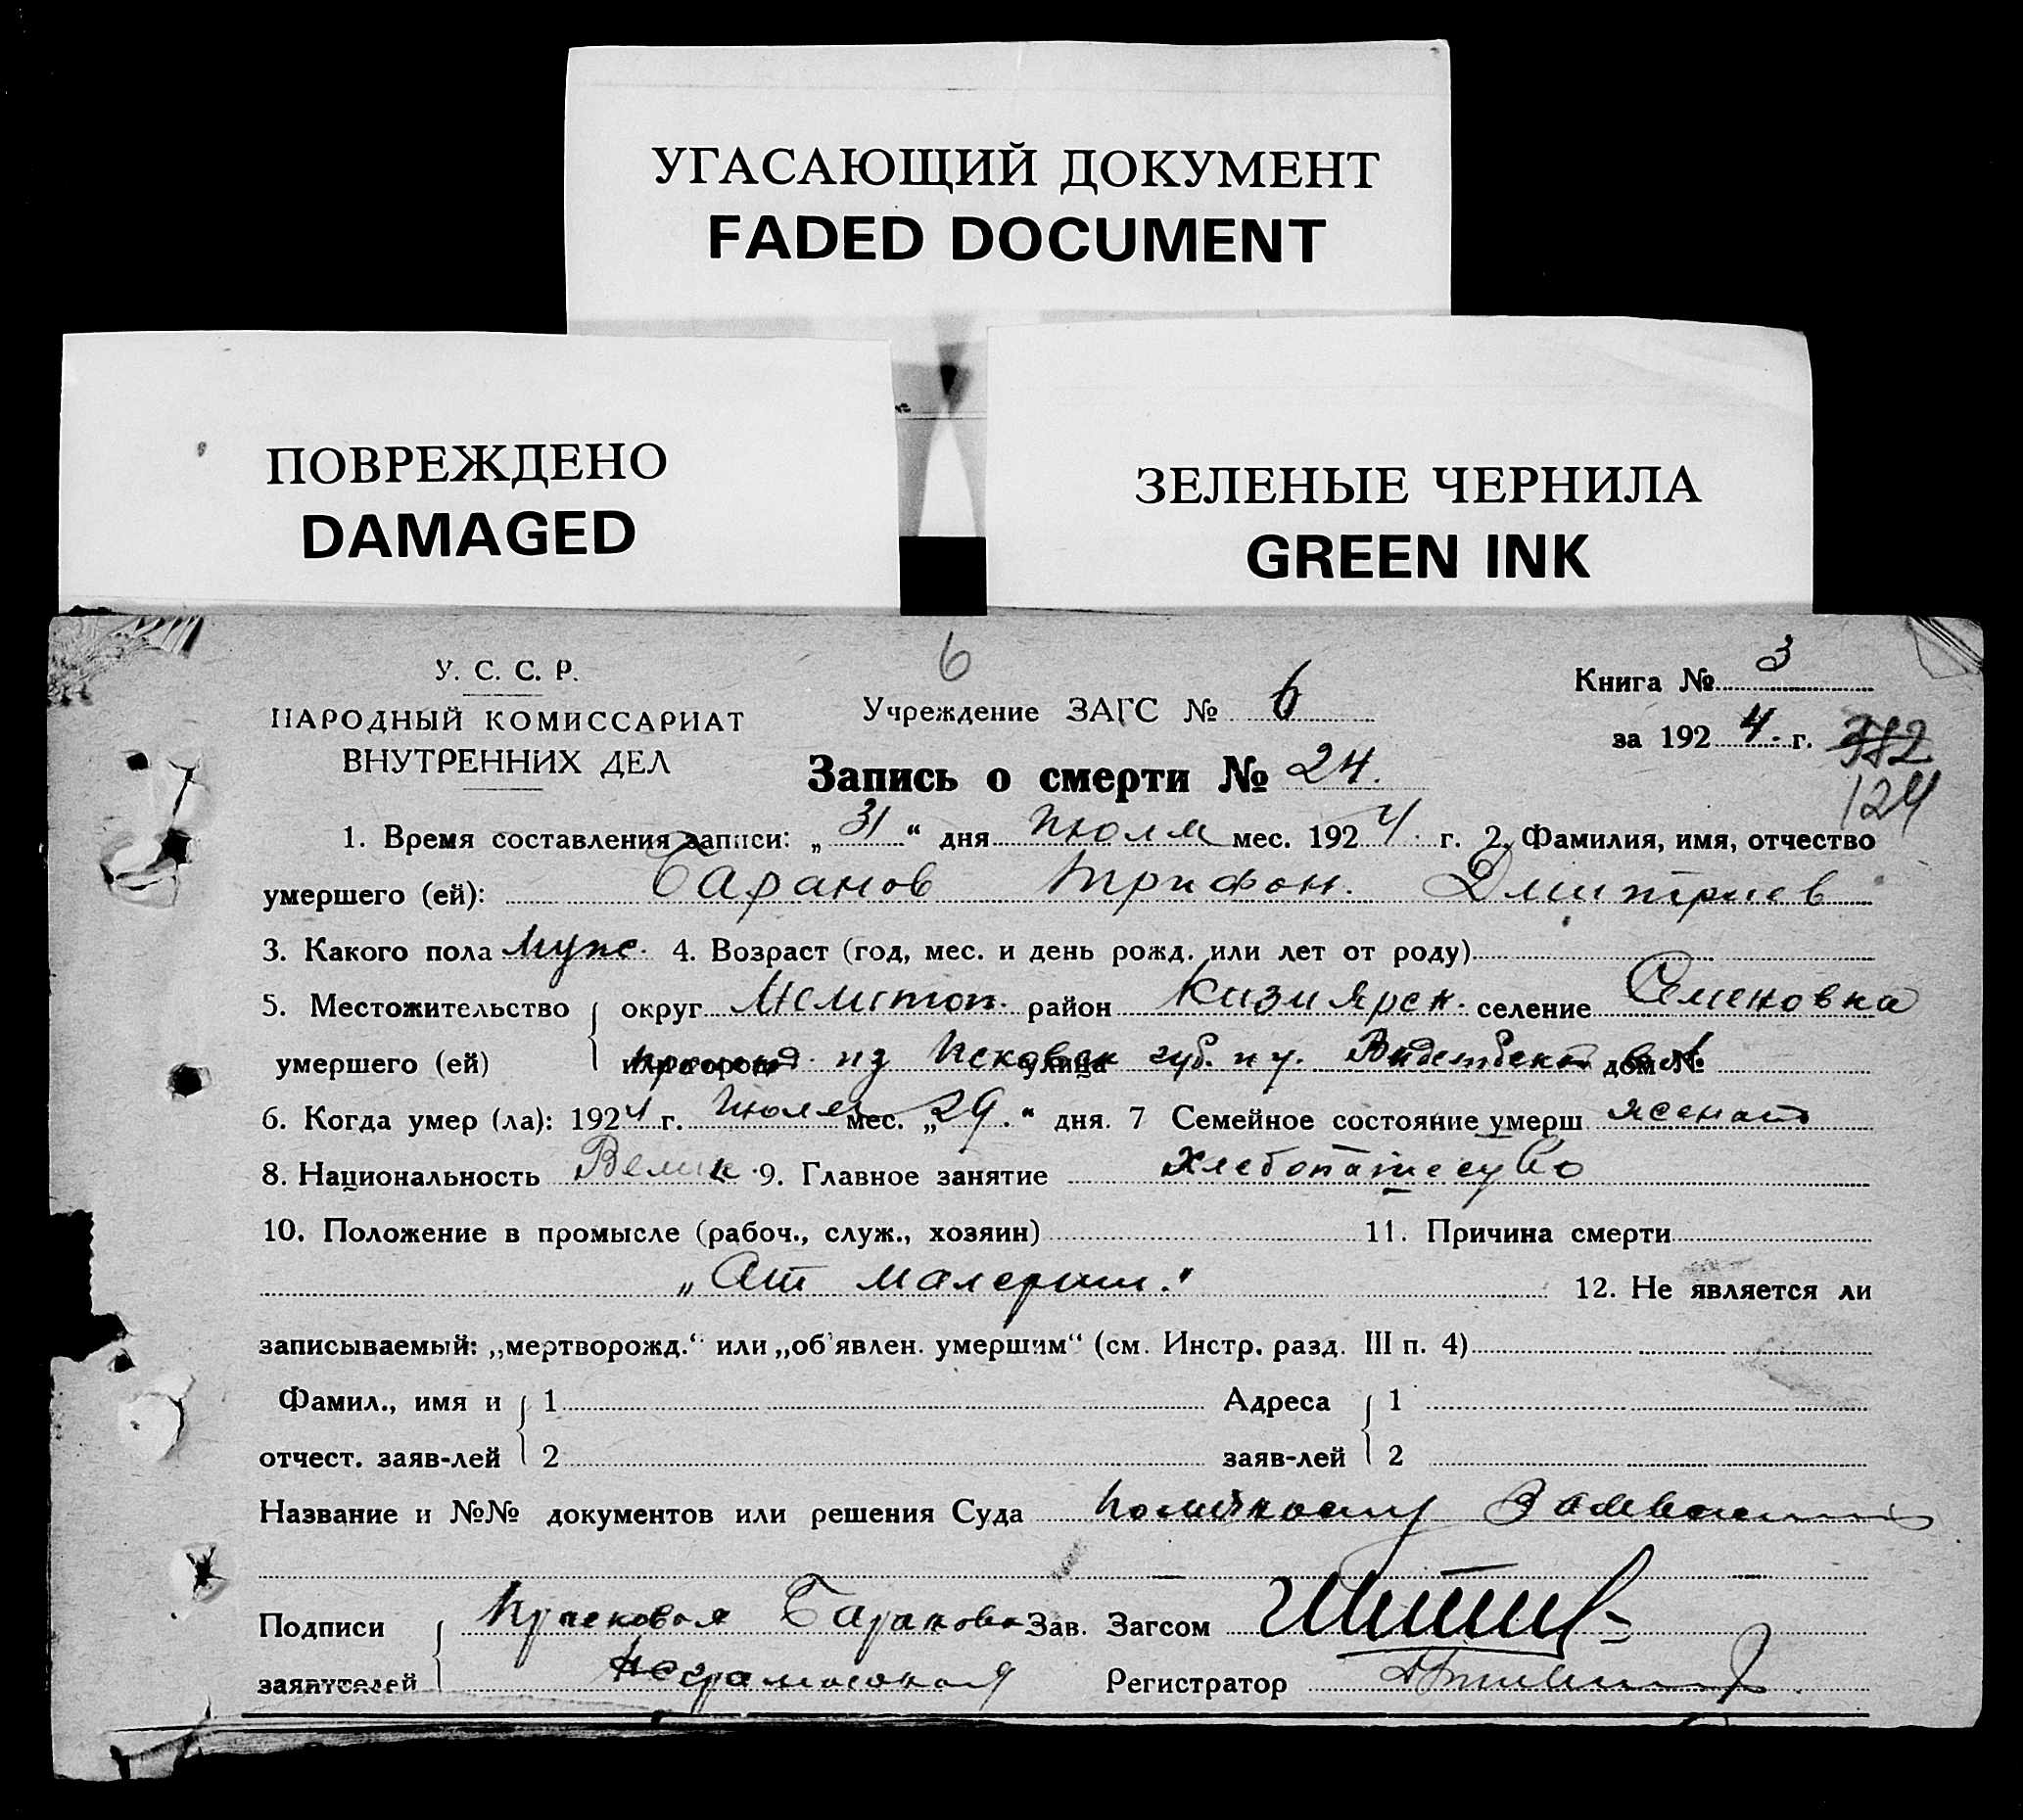 УГАСАЮЩИЙ ДОКУМЕНТ
FADED DOCUMENT
ПОВРЕЖДЕНО
DAMAGED
ЗЕЛЕНЫЕ ЧЕРНИЛА
GREEN INK
У. С. С. Р.
НАРОДНЫЙ КОМИССАРИАТ
ВНУТРЕННИХ ДЕЛ
6
Учреждение ЗАГС № 6
Книга № 3
за 1924 г.
124
Запись о смерти № 24.
1. Время составления записи: „31“ дня Июля мес. 1924 г. 2. Фамилия, имя, отчество
умершего (ей): Баранов Трифон. Дмитриев
3. Какого пола Муж. 4. Возраст (год, мес. и день рожд. или лет от роду)
5. Местожительство округ Мелитоп. район Кизиярск. селение Семеновка
умершего (ей) или город из Псковск губ. улица дом №
6. Когда умер (ла): 1924 г. Июля мес. „29.“ дня. 7 Семейное состояние умерш женат
8. Национальность Велик 9. Главное занятие
10. Положение в промысле (рабоч., служ., хозяин) 11. Причина смерти
„От малерии.“ 12. Не является ли
записываемый: „мертворожд.“ или „об'явлен. умершим“ (см. Инстр. разд. III п. 4)
Фамил., имя и 1 Адреса 1
отчест. заяв-лей 2 заяв-лей 2
Название и №№ документов или решения Суда
Подписи Баранова Зав. Загсом
заявителей Регистратор